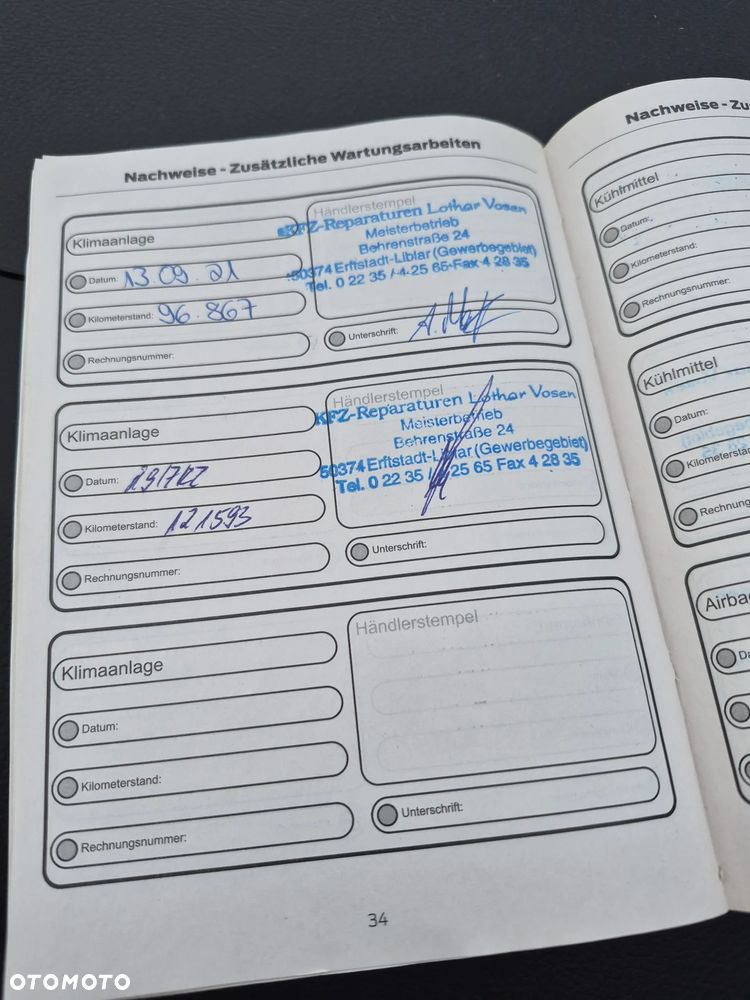 Nachweise - Zusätzliche Wartungsarbeiten
Klimaanlage
Datum: 13 09. 21
Kilometerstand: 96.867
Rechnungsnummer:
Händlerstempel
KFZ-Reparaturen Lothar Vosen
Meisterbetrieb
Behrenstraße 24
50374 Erftstadt-Liblar (Gewerbegebiet)
Tel. 0 22 35 / 4 25 65-Fax 4 28 35
Unterschrift:
Klimaanlage
Datum:
Kilometerstand: 121593
Rechnungsnummer:
Händlerstempel
KFZ-Reparaturen Lothar Vosen
Meisterbetrieb
Behrenstraße 24
50374 Erftstadt-Liblar (Gewerbegebiet)
Tel. 0 22 35 / 4 25 65 Fax 4 28 35
Unterschrift:
Klimaanlage
Datum:
Kilometerstand:
Rechnungsnummer:
Händlerstempel
Unterschrift:
34
Nachweise - Zu
Kühlmittel
Datum:
Kilometerstand:
Rechnungsnummer:
Kühlmittel
Datum:
Kilometerstan
Rechnung
Airbag
Da
OTOMOTO